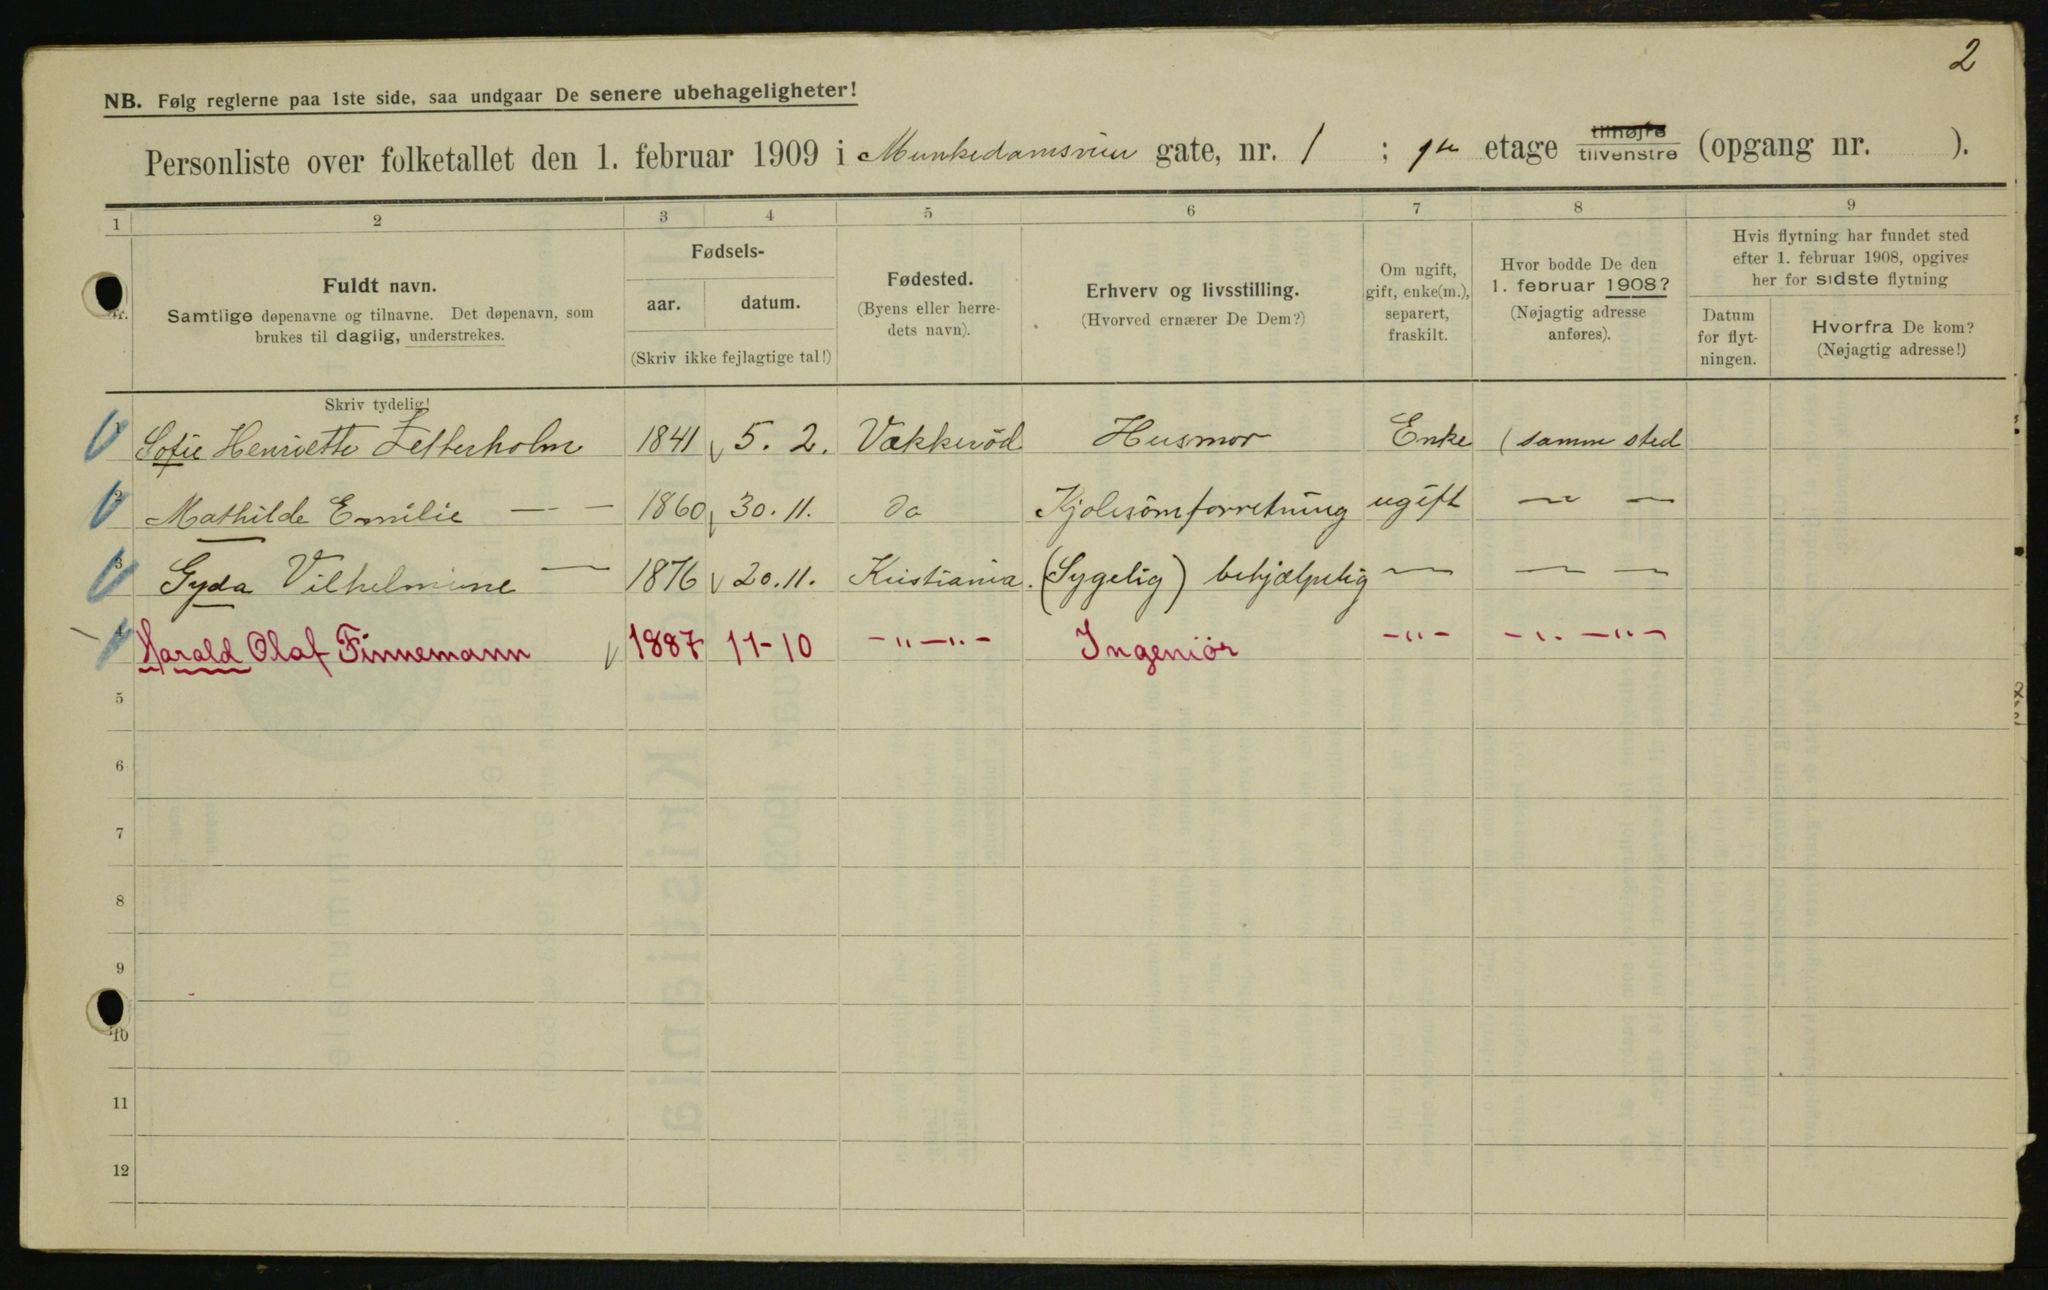 2
NB. Følg reglerne paa 1ste side, saa undgaar De senere ubehageligheter!
Personliste over folketallet den 1. februar 1909 i Munkedamsveien gate, nr. 1 ; 1ste etage tilhøjre tilvenstre (opgang nr. ).
1 2 3 4 5 6 7 8 9
Nr.
Fuldt navn.
Samtlige døpenavne og tilnavne. Det døpenavn, som
brukes til daglig, understrekes.
Skriv tydelig!
Fødsels-
aar. datum.
(Skriv ikke fejlagtige tal!)
Fødested.
(Byens eller herre-
dets navn).
Erhverv og livsstilling.
(Hvorved ernærer De Dem?)
Om ugift,
gift, enke(m.),
separert,
fraskilt.
Hvor bodde De den
1. februar 1908?
(Nøjagtig adresse
anføres).
Hvis flytning har fundet sted
efter 1. februar 1908, opgives
her for sidste flytning
Datum
for flyt-
ningen.
Hvorfra De kom?
(Nøjagtig adresse!)
1 Sofie Henriette Zetterholm 1841 5. 2. Vækkerød Husmor Enke samme sted
2 Mathilde Emilie — — 1860 30. 11. do Kjolesömforretning ugift — —
3 Gyda Vilhelmine — 1876 20. 11. Kristiania. (Sygelig) behjælpelig — — —
4 Harald Olaf Finnemann 1887 11-10 -"-"- Ingeniör -"- -"-"-
5
6
7
8
9
10
11
12